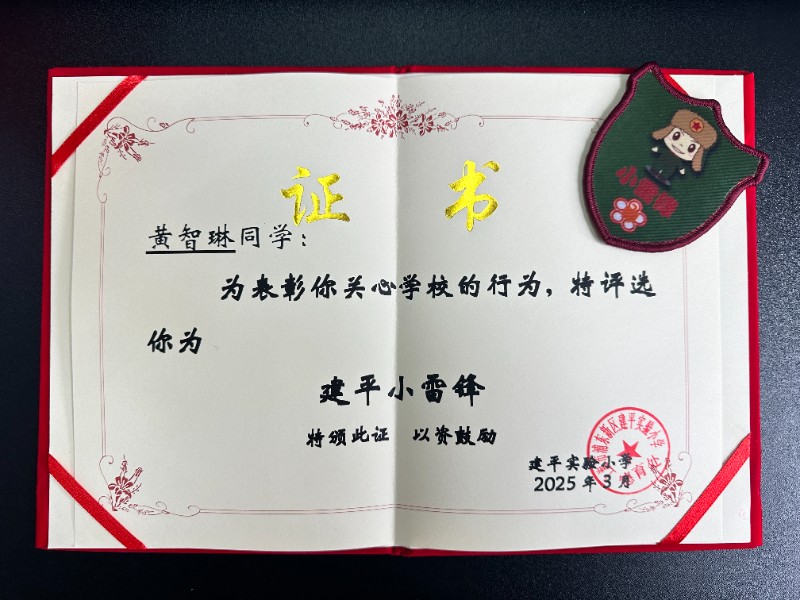 证 书
黄智琳同学：
为表彰你关心学校的行为，特评选
你为
建平小雷锋
特颁此证 以资鼓励
建平实验小学
2025年3月
小雷锋
浦东新区建平实验小学
德育处